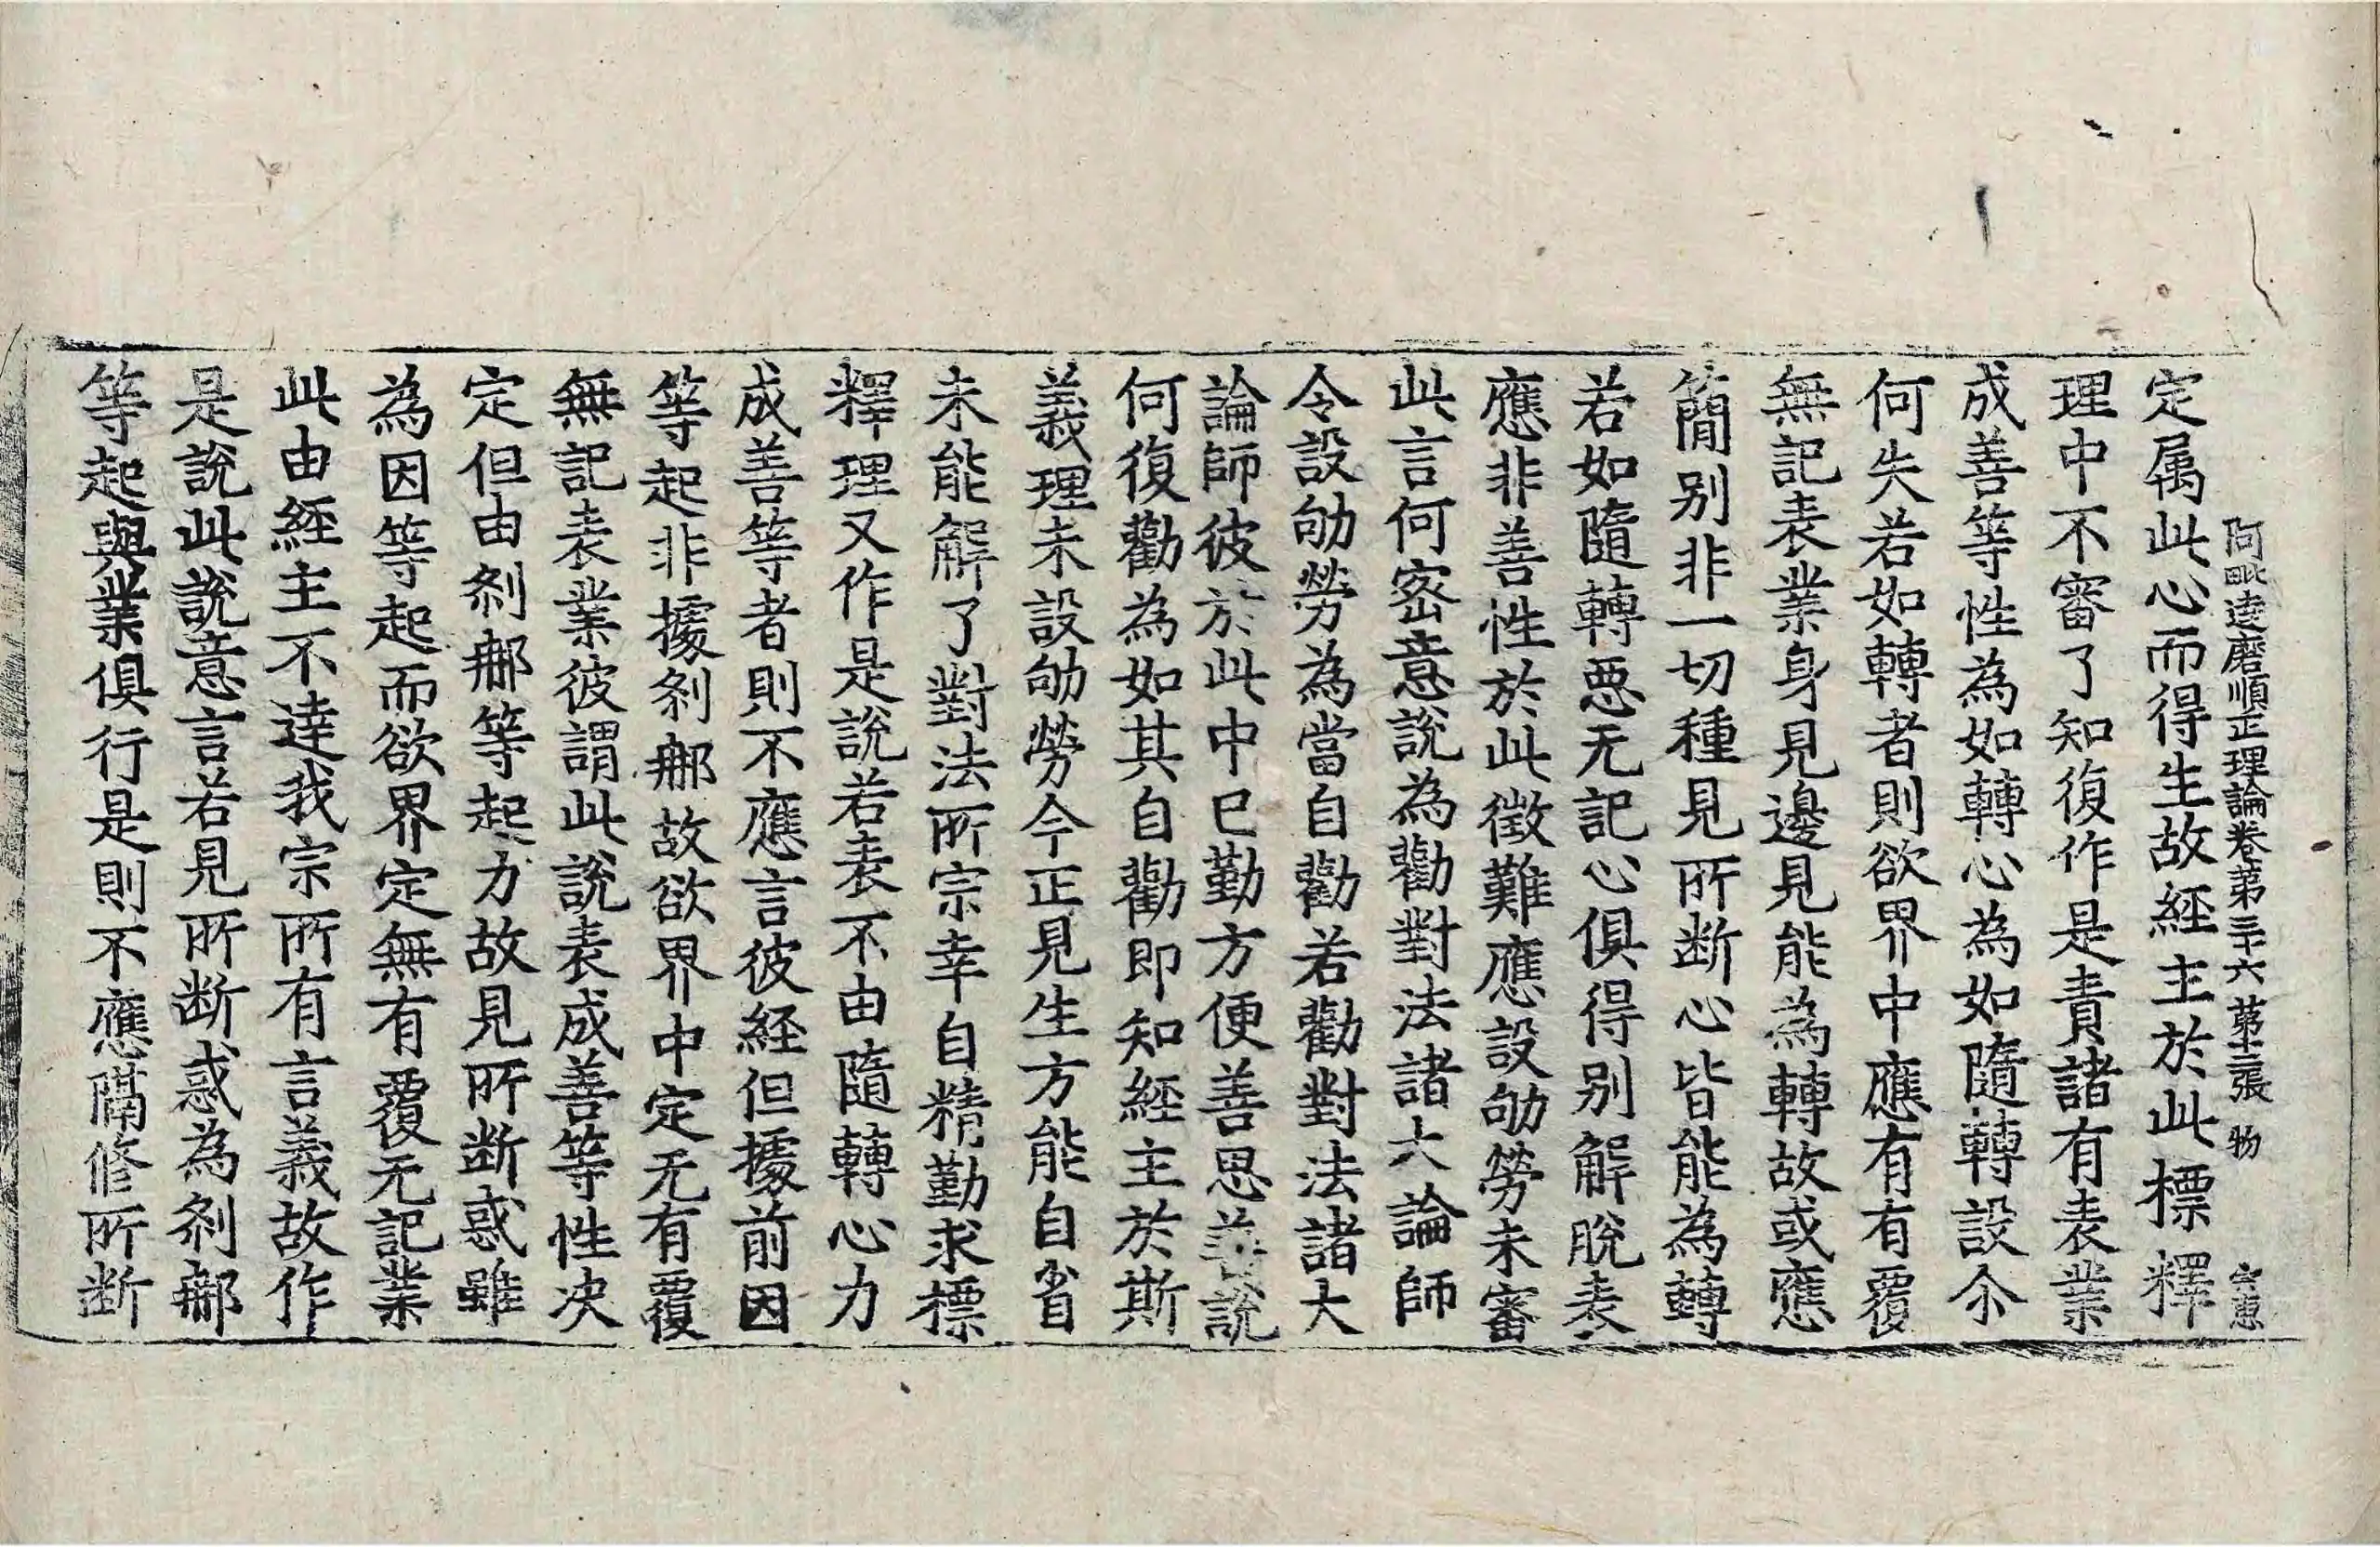 阿毗達磨順正理論卷第三十六 第十二張 物
定属此心而得生故經主於此標釋
理中不審了知復作是責諸有表業
成善等性為如轉心為如隨轉設尒
何失若如轉者則欲界中應有有覆
無記表業身見邊見能為轉故或應
簡別非一切種見所断心皆能為轉
若如隨轉惡无記心俱得別解脫表
應非善性於此徵難應設劬勞未審
此言何密意說為勸對法諸大論師
令設劬勞為當自勸若勸對法諸大
論師彼於此中已勤方便善思善說
何復勸為如其自勸即知經主於斯
義理未設劬勞今正見生方能自省
未能解了對法所宗幸自精勤求標
釋理又作是說若表不由隨轉心力
成善等者則不應言彼經但據前因
等起非據剎𨙻故欲界中定无有覆
無記表業彼謂此說表成善等性決
定但由剎𨙻等起力故見所断惑雖
為因等起而欲界定無有覆无記業
此由經主不達我宗所有言義故作
是說此說意言若見所断惑為剎𨙻
等起與業俱行是則不應隔修所断